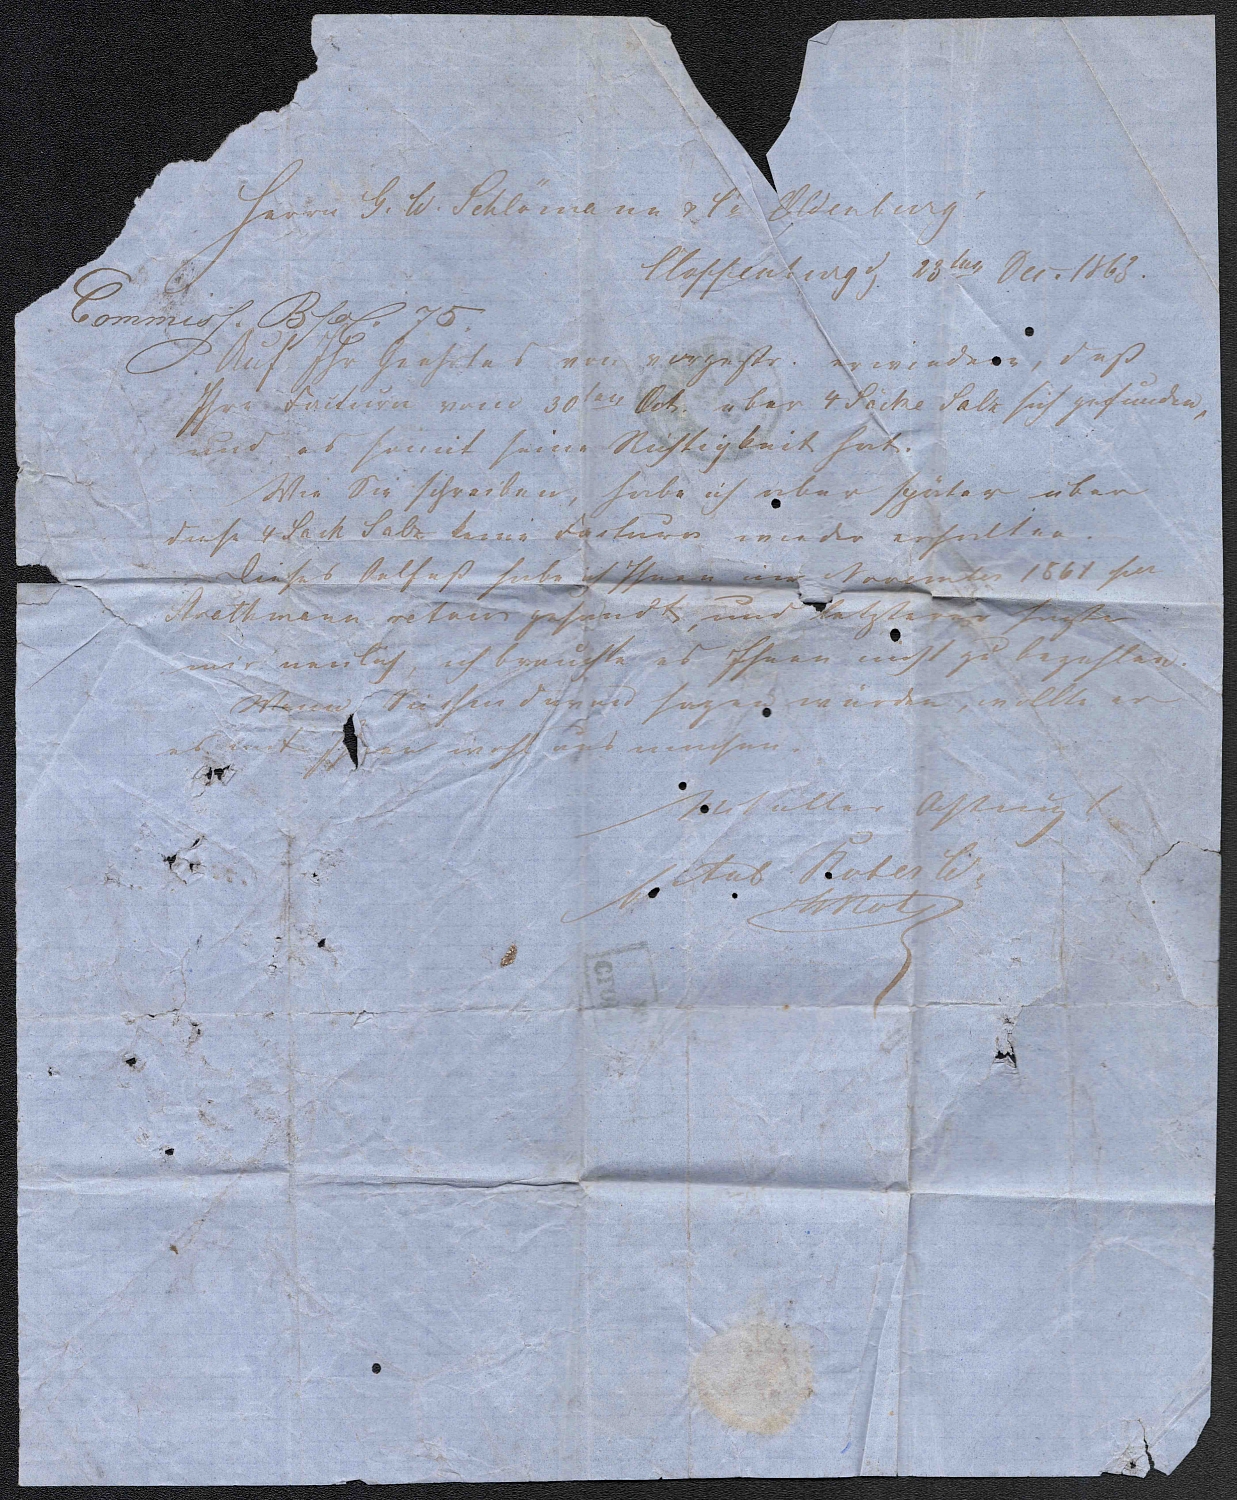 Herrn G. W. Schlömann & Co Oldenburg
Cloppenburg d. 23ten Dec. 1863.
Commiss. 75.
Auf Ihr Geehrtes von vorgestr. erwiedere, daß
Ihre Factura vom 30ten Oct. über 4 Säcke Salz sich gefunden,
und es somit seine Richtigkeit hat.
Wie Sie schreiben, habe ich aber später über
diese 4 Sack Salz keine Factura wieder erhalten.
Dieses Oelfaß habe ich Ihnen im November 1861 per
retour gesandt, und letzterer sagte
mir neulich, ich brauchte es Ihnen nicht zu bezahlen.
Wenn Sie ihm darum sagen würden, wollte er
es mit Ihnen wohl aus machen.
Mit aller Achtung
Ant.